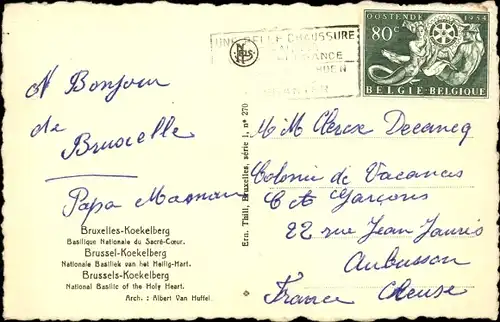 UNE BELLE CHAUSSURE
OOSTENDE 1954
80c
BELGIË-BELGIQUE
A Bonjour
de
Bruxelle
Papa Maman
Bruxelles-Koekelberg
Basilique Nationale du Sacré-Cœur.
Brussel-Koekelberg
Nationale Basiliek van het Heilig-Hart.
Brussels-Koekelberg
National Basilic of the Holy Heart.
Arch. : Albert Van Huffel.
Ern. Thill, Bruxelles, série 1, n° 270
M M Clerex Decancq
Colonie de Vacances
Garçons
22 rue Jean Jauris
Aubusson
France Creuse